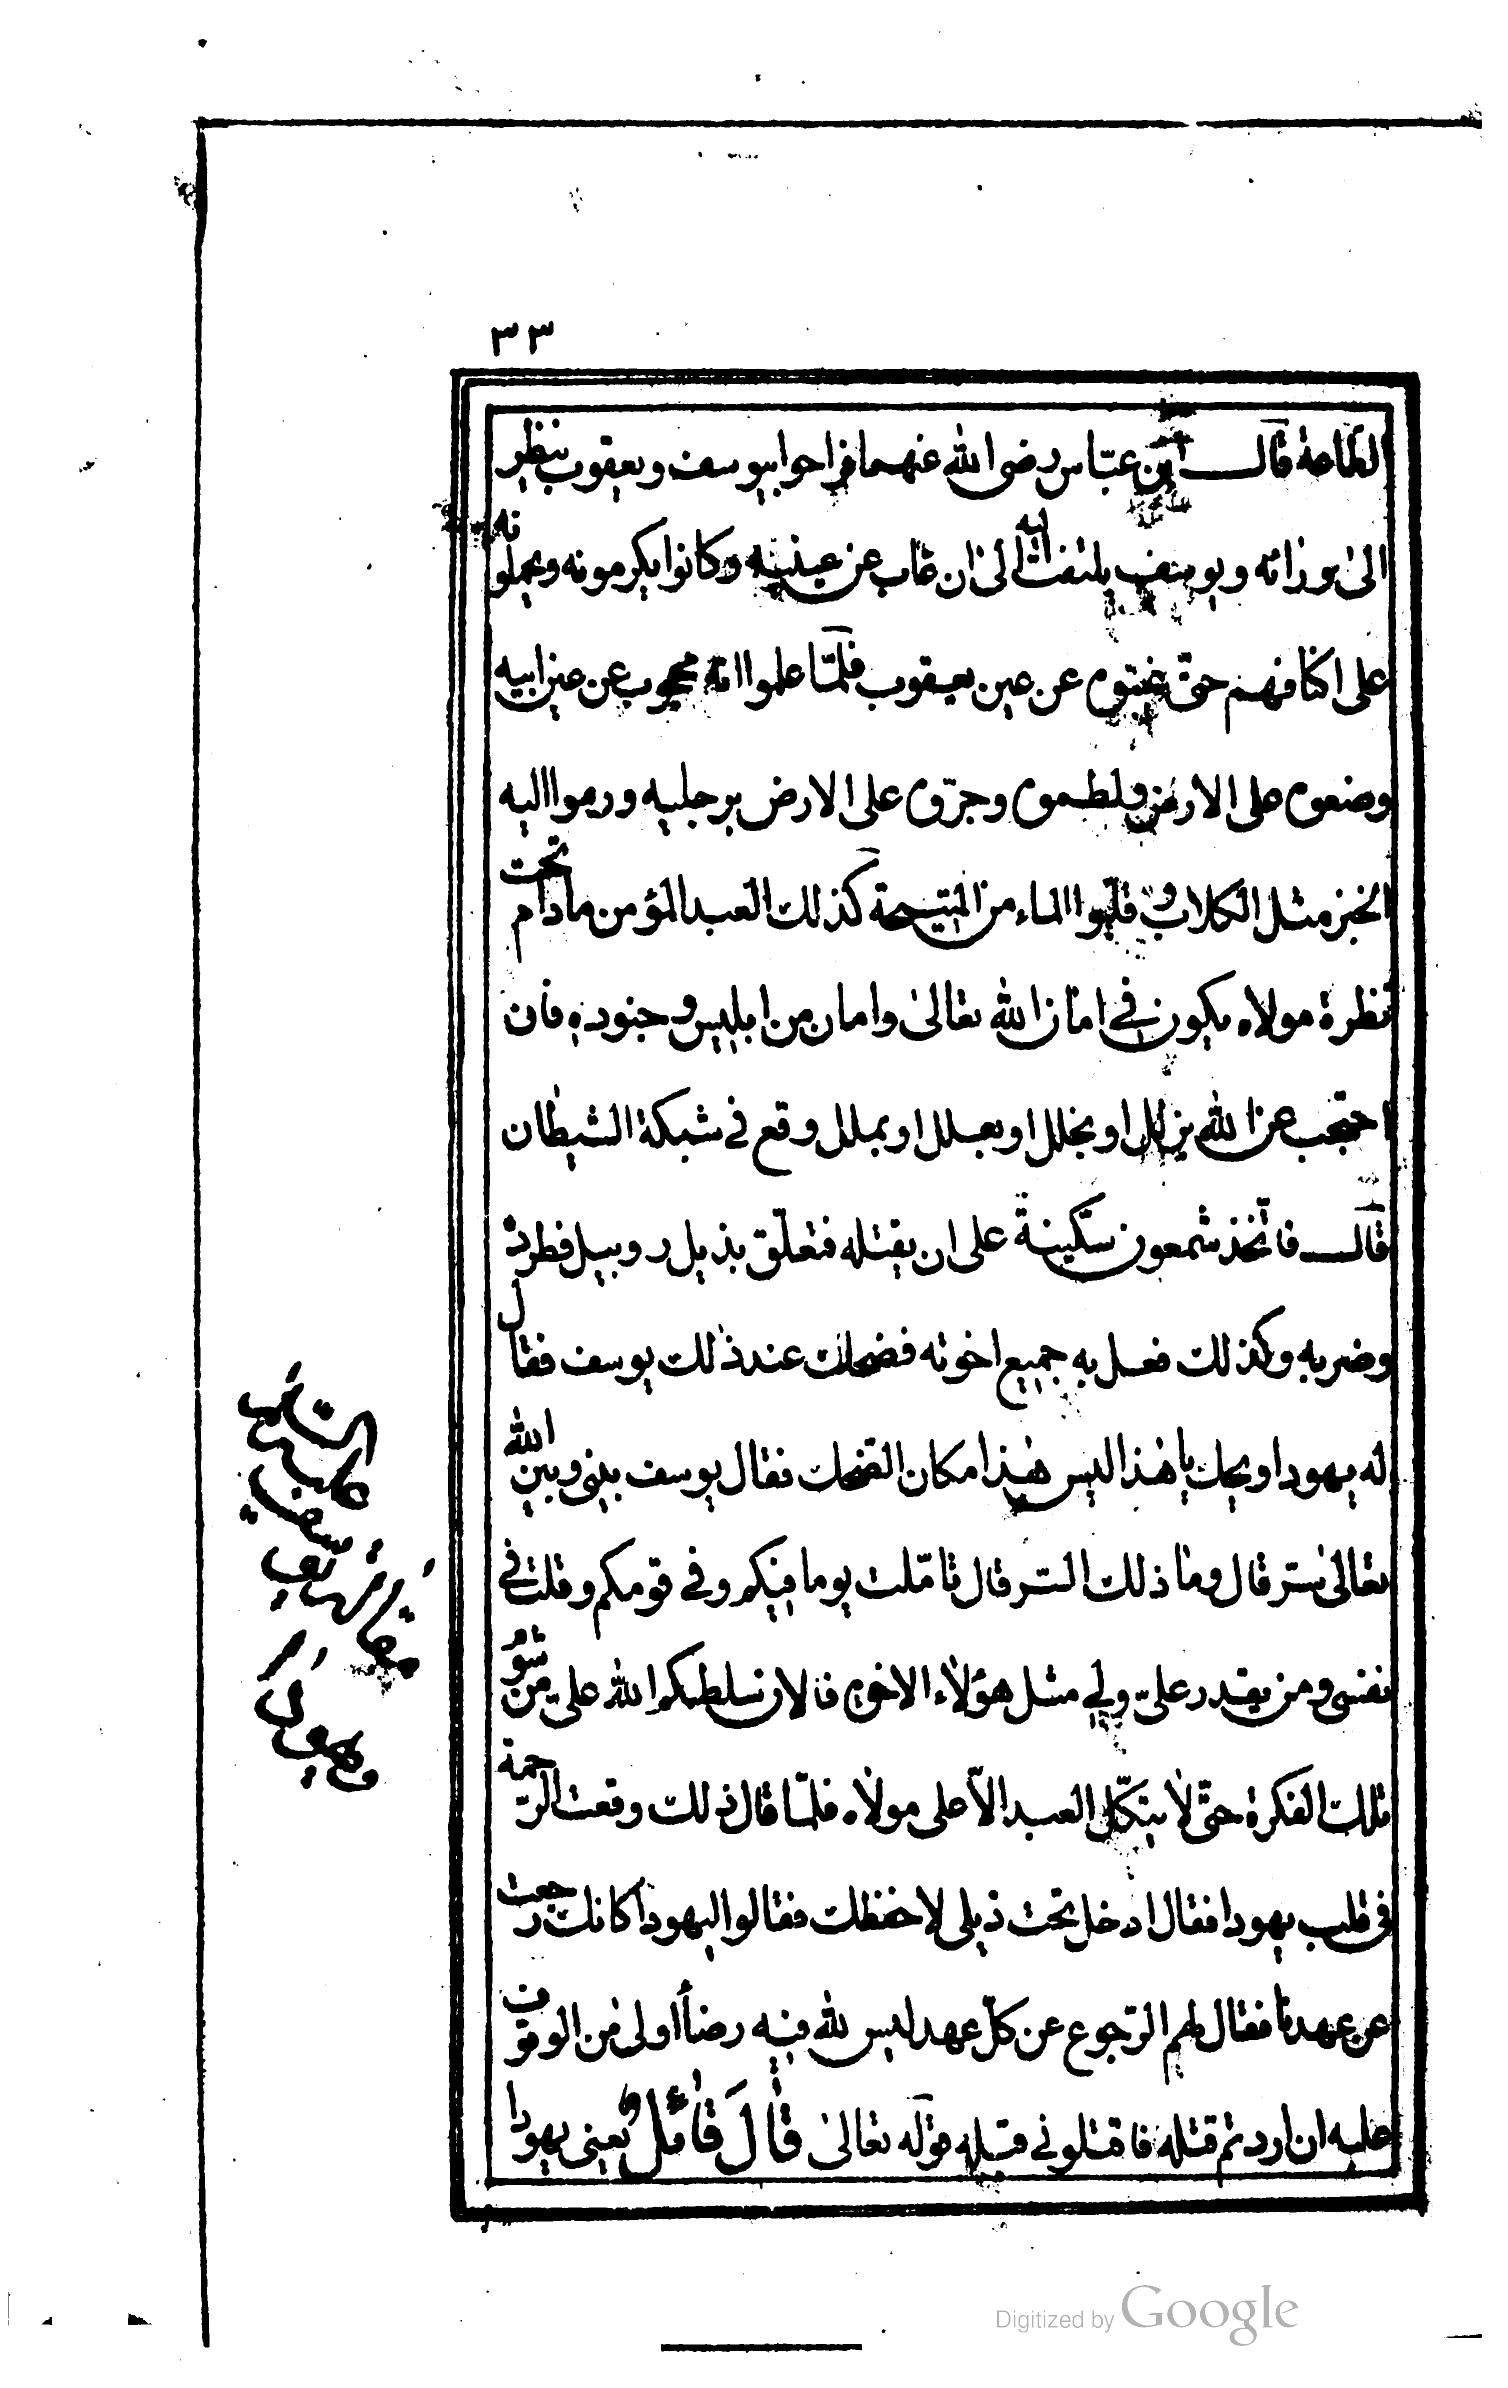 ٣٣
الطاعة قال ابن عبّاس رضى الله عنهما فراحوا بيوسف ويعقوب ينظر
الى ورائه ويوسف يلتفت اليه الى ان غاب عن عينيه وكانوا يكرمونه ويحملونه
على اكتافهم حتّى غيّبوه عن عين يعقوب فلمّا علموا انه محجوب عن عين ابيه
وضعوه على الارض ولطموه وجرّوه على الارض برجليه ورموا اليه
الخبز مثل الكلاب وقلبوا الماء من كذلك العبد المؤمن مادام تحت
نظرة مولاه يكون في امان الله تعالى وامان من ابليس وجنوده فان
احتجب عن الله بزلل او بخلل او بعلل او بملل وقع في شبكة الشيطان
قال فاتّخذ شمعون سكّينة على ان يقتله فتعلّق بذيل روبيل فطرده
وضربه وكذلك فعل به جميع اخوته فضحك عند ذلك يوسف فقال
له يهودا ويحك يا هذا اليس هذا مكان الضحك فقال يوسف بينى وبين الله
تعالى سرّ قال وما ذلك السّر قال تامّلت يوما فيكم وفى قوّمكم وقلت فى
نفسى ومن يقدر علىّ ولى مثل هؤلاء الاخوة فالان سلطكم الله علىّ من شؤ
تلك الفكرة حتّى لا يتكّل العبد الاّ على مولاه فلمّا قال ذلك وقعت الرّحمة
فى قلب يهودا فقال ادخل تحت ذيلى لاحفظك فقالوا ليهودا كانك رجعت
عن عهدنا فقال لهم الرّجوع عن كلّ عهد ليس لله فيه رضاً اولى من الوقوف
عليه ان اردتم قتله فاقتلونى قبله قوله تعالى قَالَ قَائِلٌ يعنى يهودا
Digitized by Google